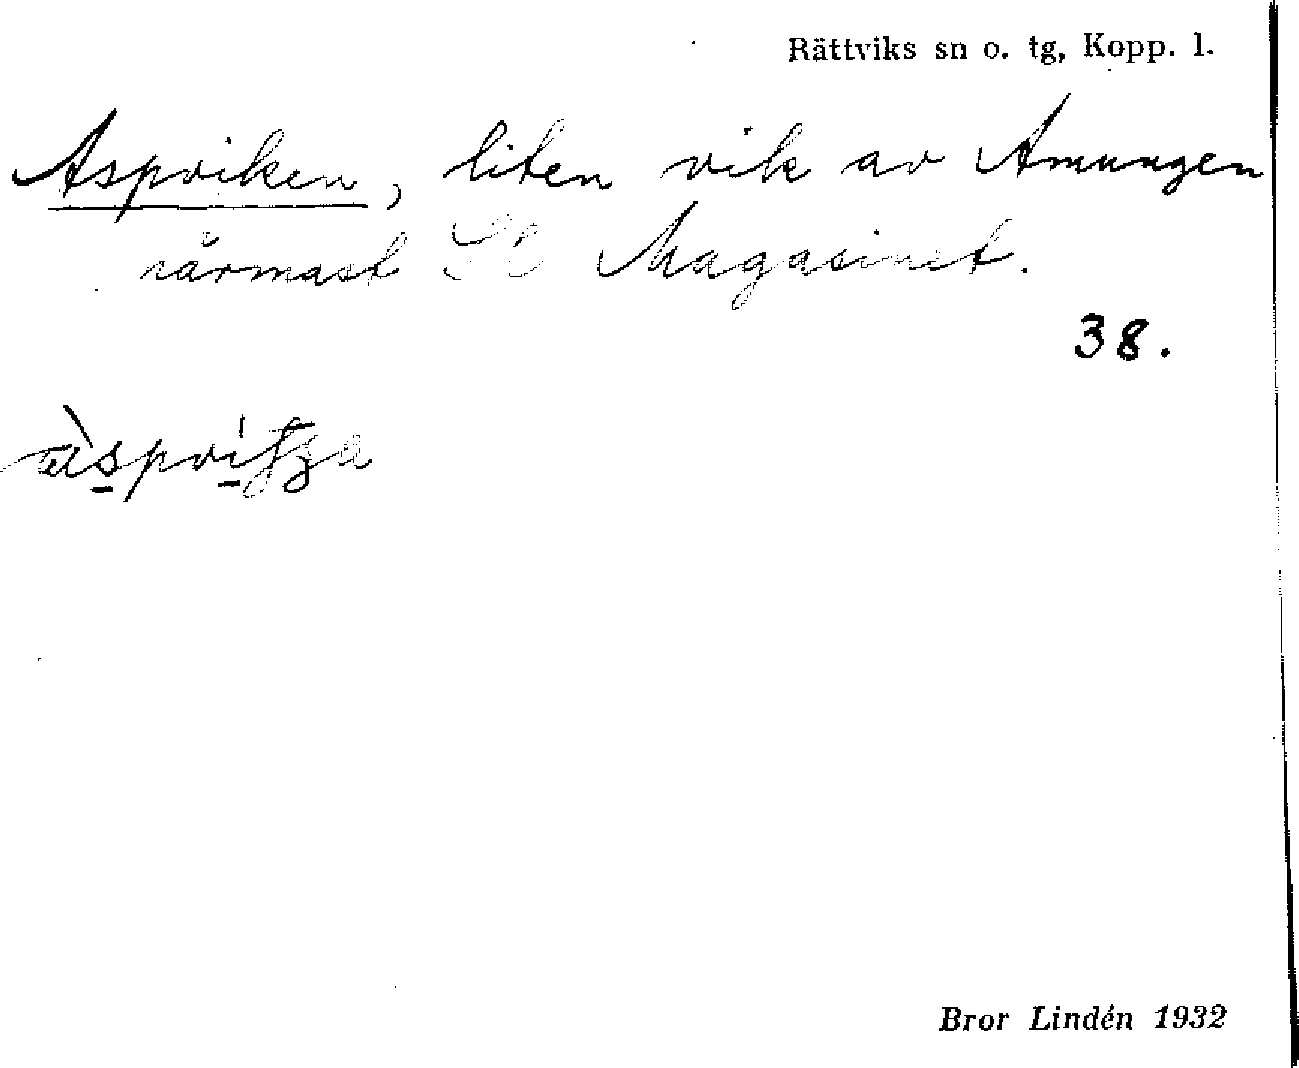 Rättviks sn o. tg, Kopp. l.
Aspviken, liten vik av Amungen
närmast Magasinet.
38.
Bror Lindén 1932